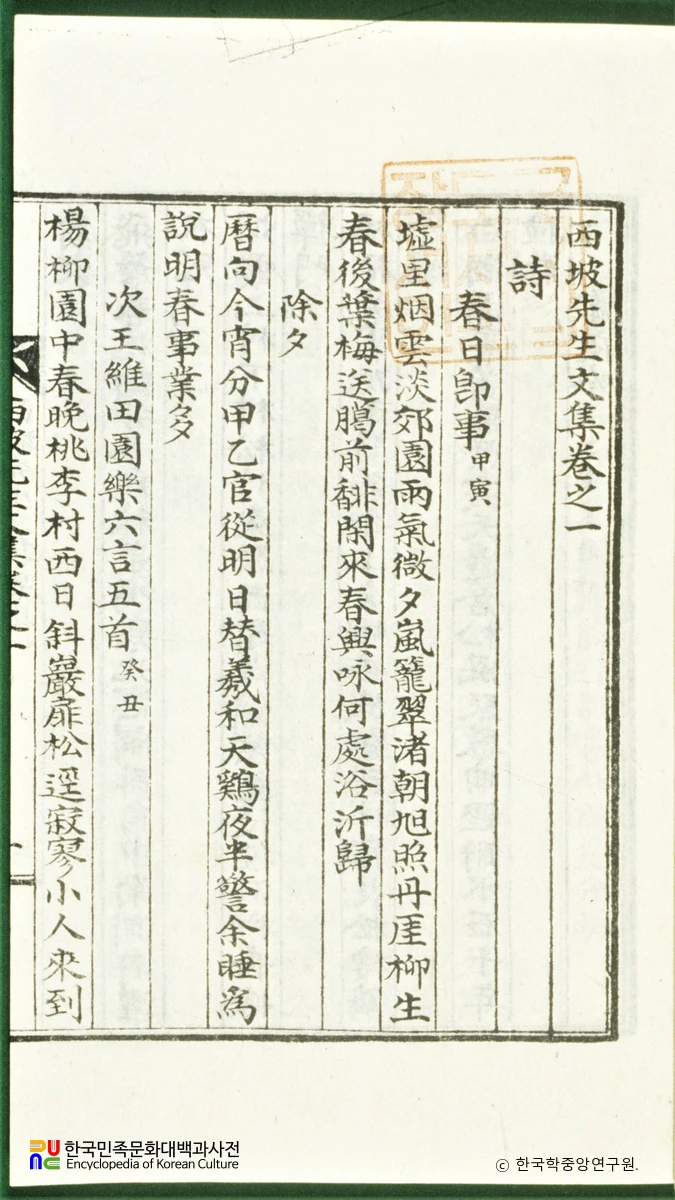 西坡先生文集卷之一
詩
春日卽事 甲寅
墟里烟雲淡郊園雨氣微夕嵐籠翠渚朝旭照丹厓柳生
春後葉梅送臘前馡閑來春興咏何處浴沂歸
除夕
曆向今宵分甲乙官從明日替羲和天鷄夜半警余睡爲
說明春事業多
次王維田園樂六言五首 癸丑
楊柳園中春晚桃李村西日斜巖扉松逕寂寥小人來到
한국민족문화대백과사전
Encyclopedia of Korean Culture
© 한국학중앙연구원.